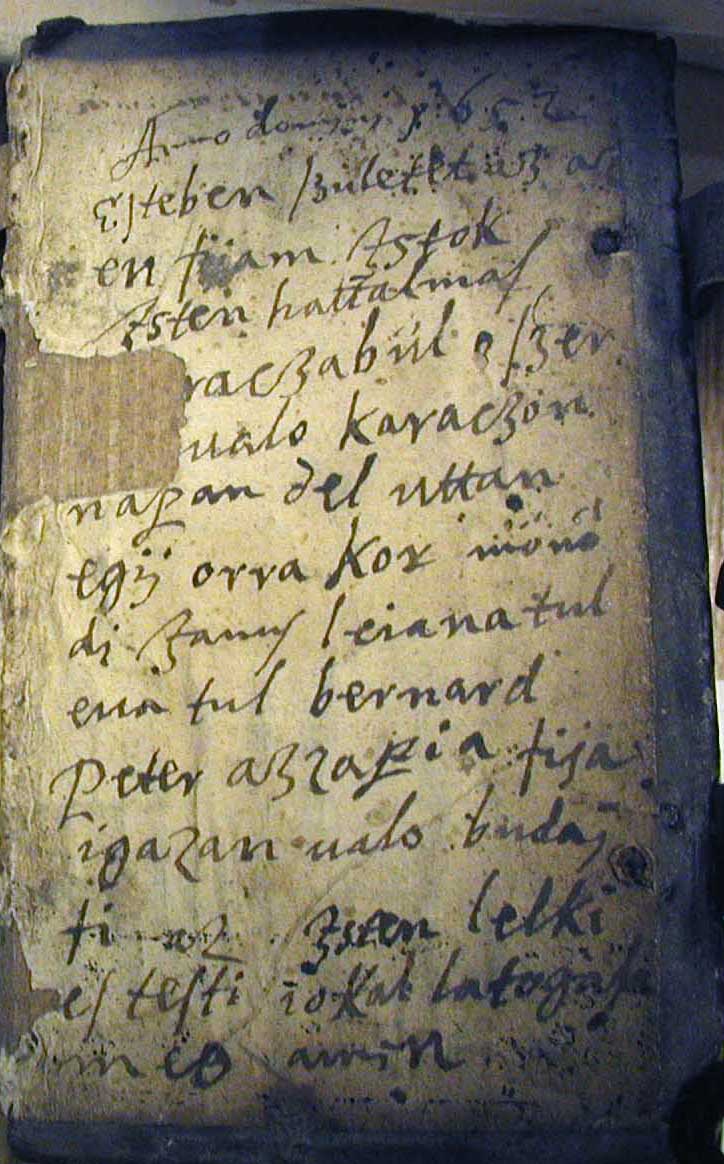 Anno domini 1652
Esteben szuletet az az
en fijam Istok
Isten hattalmas
raczabul eszer
ualo karaczon
napan del uttan
egÿ orra kor
leianatul
euatul bernard
Peter azzapia fija
igazan ualo budaj
fi az Isten lelki
es testi iokal latogassa
meg amen